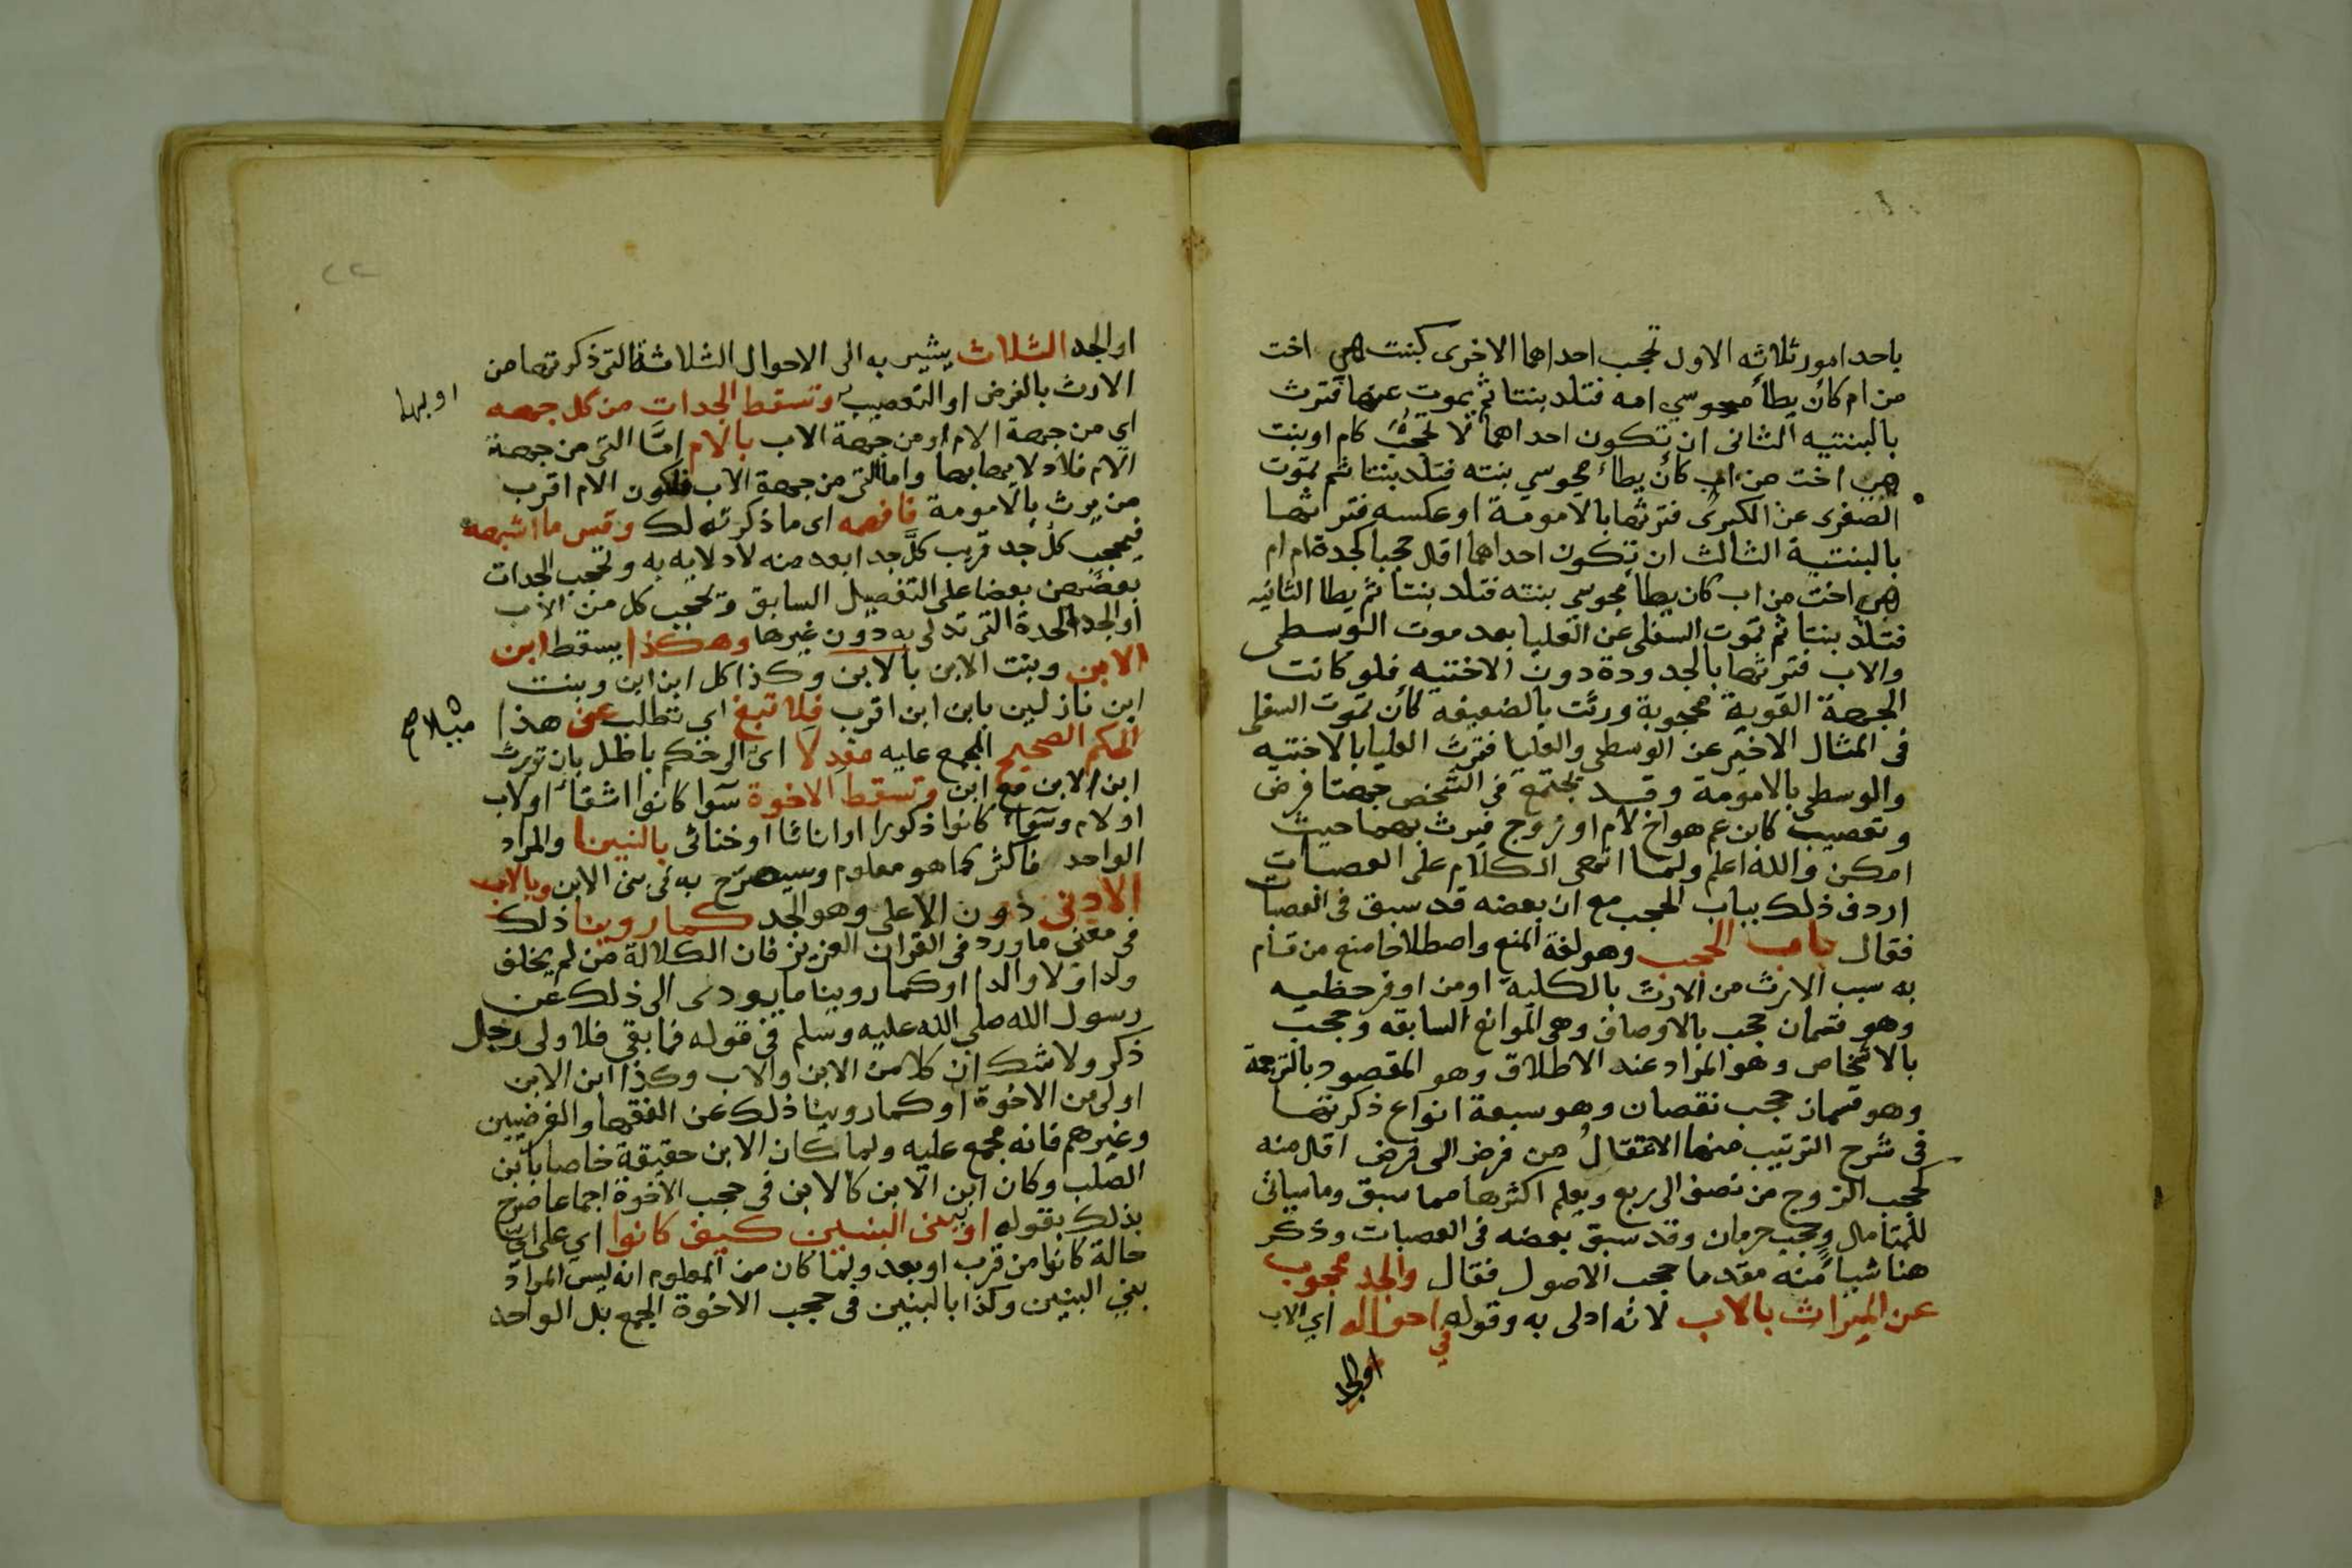 باحد امور ثلاثه الاول تحجب احداهما الاخرى كبنت هي اخت
من ام كأن يطأ مجوسي امه فتلد بنتا ثم يموت عنها فترث
بالبنتيه الثانى ان تكون احداهما لا تحجب كام او بنت
هي اخت من اب كأن يطاء مجوسي بنته فتلد بنتا ثم تموت
الصغرى عن الكبرى فترثها بالامومة او عكسه فترثها
بالبنتية الثالث ان تكون احداهما اقل حجبا كجدة ام ام
هي اخت من اب كان يطأ مجوسي بنته فتلد بنتا ثم يطا الثانيه
فتلد بنتا ثم تموت السفلى عن العليا بعد موت الوسطى
والاب فترثها بالجدودة دون الاختيه فلو كانت
الجهة القوية محجوبة ورثت بالضعيفه كأن تموت السفلى
فى المثال الاخير عن الوسطى والعليا فترث العليا بالاختيه
والوسطى بالامومة وقد تجتمع في الشخص جهتا فرض
وتعصيب كابن عم هو اخ لام او زوج فيرث بهما حيث
امكن والله اعلم ولما انهى الكلام على العصبات
اردف ذلك بباب الحجب مع ان بعضه قد سبق فى العصبات
فقال باب الحجب وهو لغة المنع واصطلاحا منع من قام
به سبب الارث من الارث بالكلية او من اوفر حظيه
وهو قسمان حجب بالاوصاف وهى الموانع السابقه وحجب
بالاشخاص وهو المراد عند الاطلاق وهو المقصود بالترجمة
وهو قسمان حجب نقصان وهو سبعة انواع ذكرتها
فى شرح الترتيب منها الانتقال من فرض الى فرض اقل منه
كحجب الزوج من نصف الى ربع ويعلم اكثرها مما سبق وما سيأتى
للمتأمل وحجب حرمان وقد سبق بعضه فى العصبات وذكر
هنا شيأ منه مقدما حجب الاصول فقال والجد محجوب
عن الميراث بالاب لانه ادلى به وقوله في احواله اي الاب
او الجد
او الجد الثلاث يشير به الى الاحوال الثلاثة التى ذكرتها من
الارث بالفرض او التعصيب وتسقط الجدات من كل جهه
او بهما
اى من جهة الام او من جهة الاب بالام امّا التى من جهة
الام فلادلايها بها واما التى من جهة الاب فلكون الام اقرب
من يرث بالامومة فافهمه اى ما ذكرته لك وقس ما اشبهه
فيحجب كل جد قريب كل جد ابعد منه لادلايه به وتحجب الجدات
بعضهن بعضا على التفصيل السابق ويحجب كل من الاب
او الجد الجدة التى تدلى به دون غيرها وهكذا يسقط ابن
الابن وبنت الابن بالابن وكذا كل ابن ابن وبنت
ابن نازلين بابن ابن اقرب فلا تبغ اي تطلب عن هذا
الحكم الصحيح المجمع عليه معدلا اى الى حكم باطل بان تورث
ابن الابن مع ابن وتسقط الاخوة سوا كانوا اشقأ او لاب
او لام وسوأ كانوا ذكورا او اناثا او خناثى بالبنينا والمراد
الواحد فاكثر كما هو معلوم وسيصرح به فى بنى الابن وبالاب
الادنى دون الاعلى وهو الجد كما روينا ذلك
فى معنى ما ورد فى القرآن العزيز فان الكلالة من لم يخلف
ولدا ولا والدا او كما روينا ما يودى الى ذلك عن
رسول الله صلى الله عليه وسلم فى قوله فما بقي فلاولى رجل
ذكر ولا شك ان كلا من الابن والاب وكذا ابن الابن
اولى من الاخوة او كما روينا ذلك عن الفقها والفرضيين
وغيرهم فانه مجمع عليه ولما كان الابن حقيقة خاصا بابن
الصلب وكان ابن الابن كالابن فى حجب الاخوة اجماعا صرح
بذلك بقوله او ببنى البنين كيف كانوا اي على اي
حالة كانوا من قرب او بعد ولما كان من المعلوم انه ليس المراد
ببني البنين وكذا بالبنين فى حجب الاخوة الجمع بل الواحد